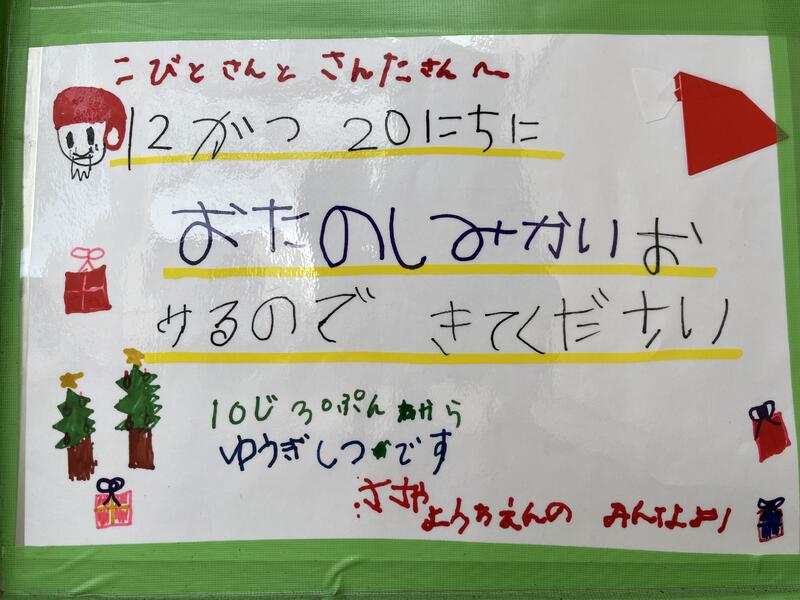 こびとさんと さんたさんへ
12がつ 20にちに
おたのしみかいお
するので きてください
10じ30ぷん から
ゆうぎしつ です
ささや
ようちえんの みんなより